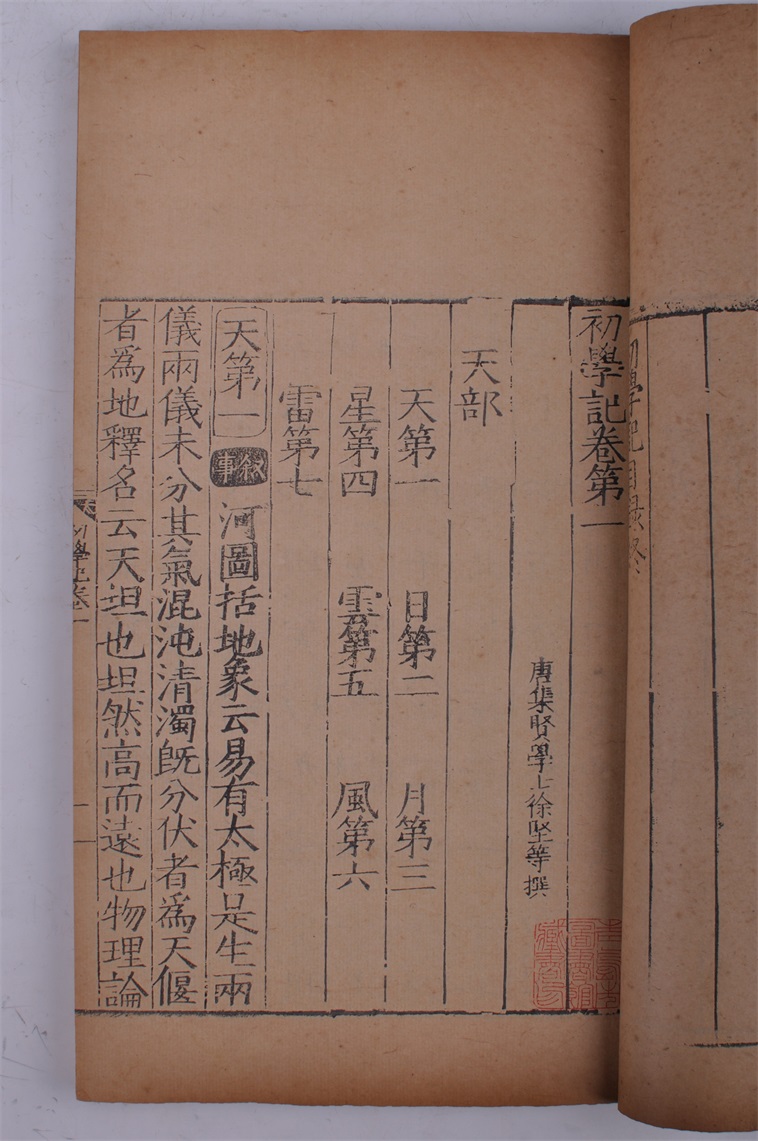 初學記卷第一
唐集賢學士徐堅等撰
天部
天第一 日第二 月第三
星第四 雲第五 風第六
雷第七
天第一 叙事 河圖括地象云易有太極是生兩
儀兩儀未分其氣混沌清濁旣分伏者爲天偃
者爲地釋名云天坦也坦然高而遠也物理論
初學記卷一
初學記目錄終